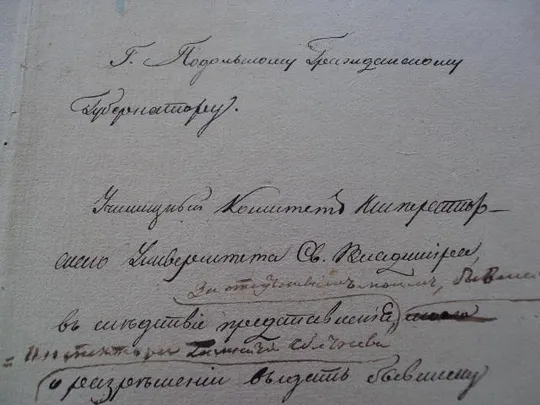 Г. Подольскому Гражданскому
Губернатору.
Училищный Комитетъ Император-
скаго Университета Св. Владиміра,
За отсутствіемъ моимъ, бывшаго
въ слѣдствіе представленія
инспектора
о разрѣшеніи выдать бывшему